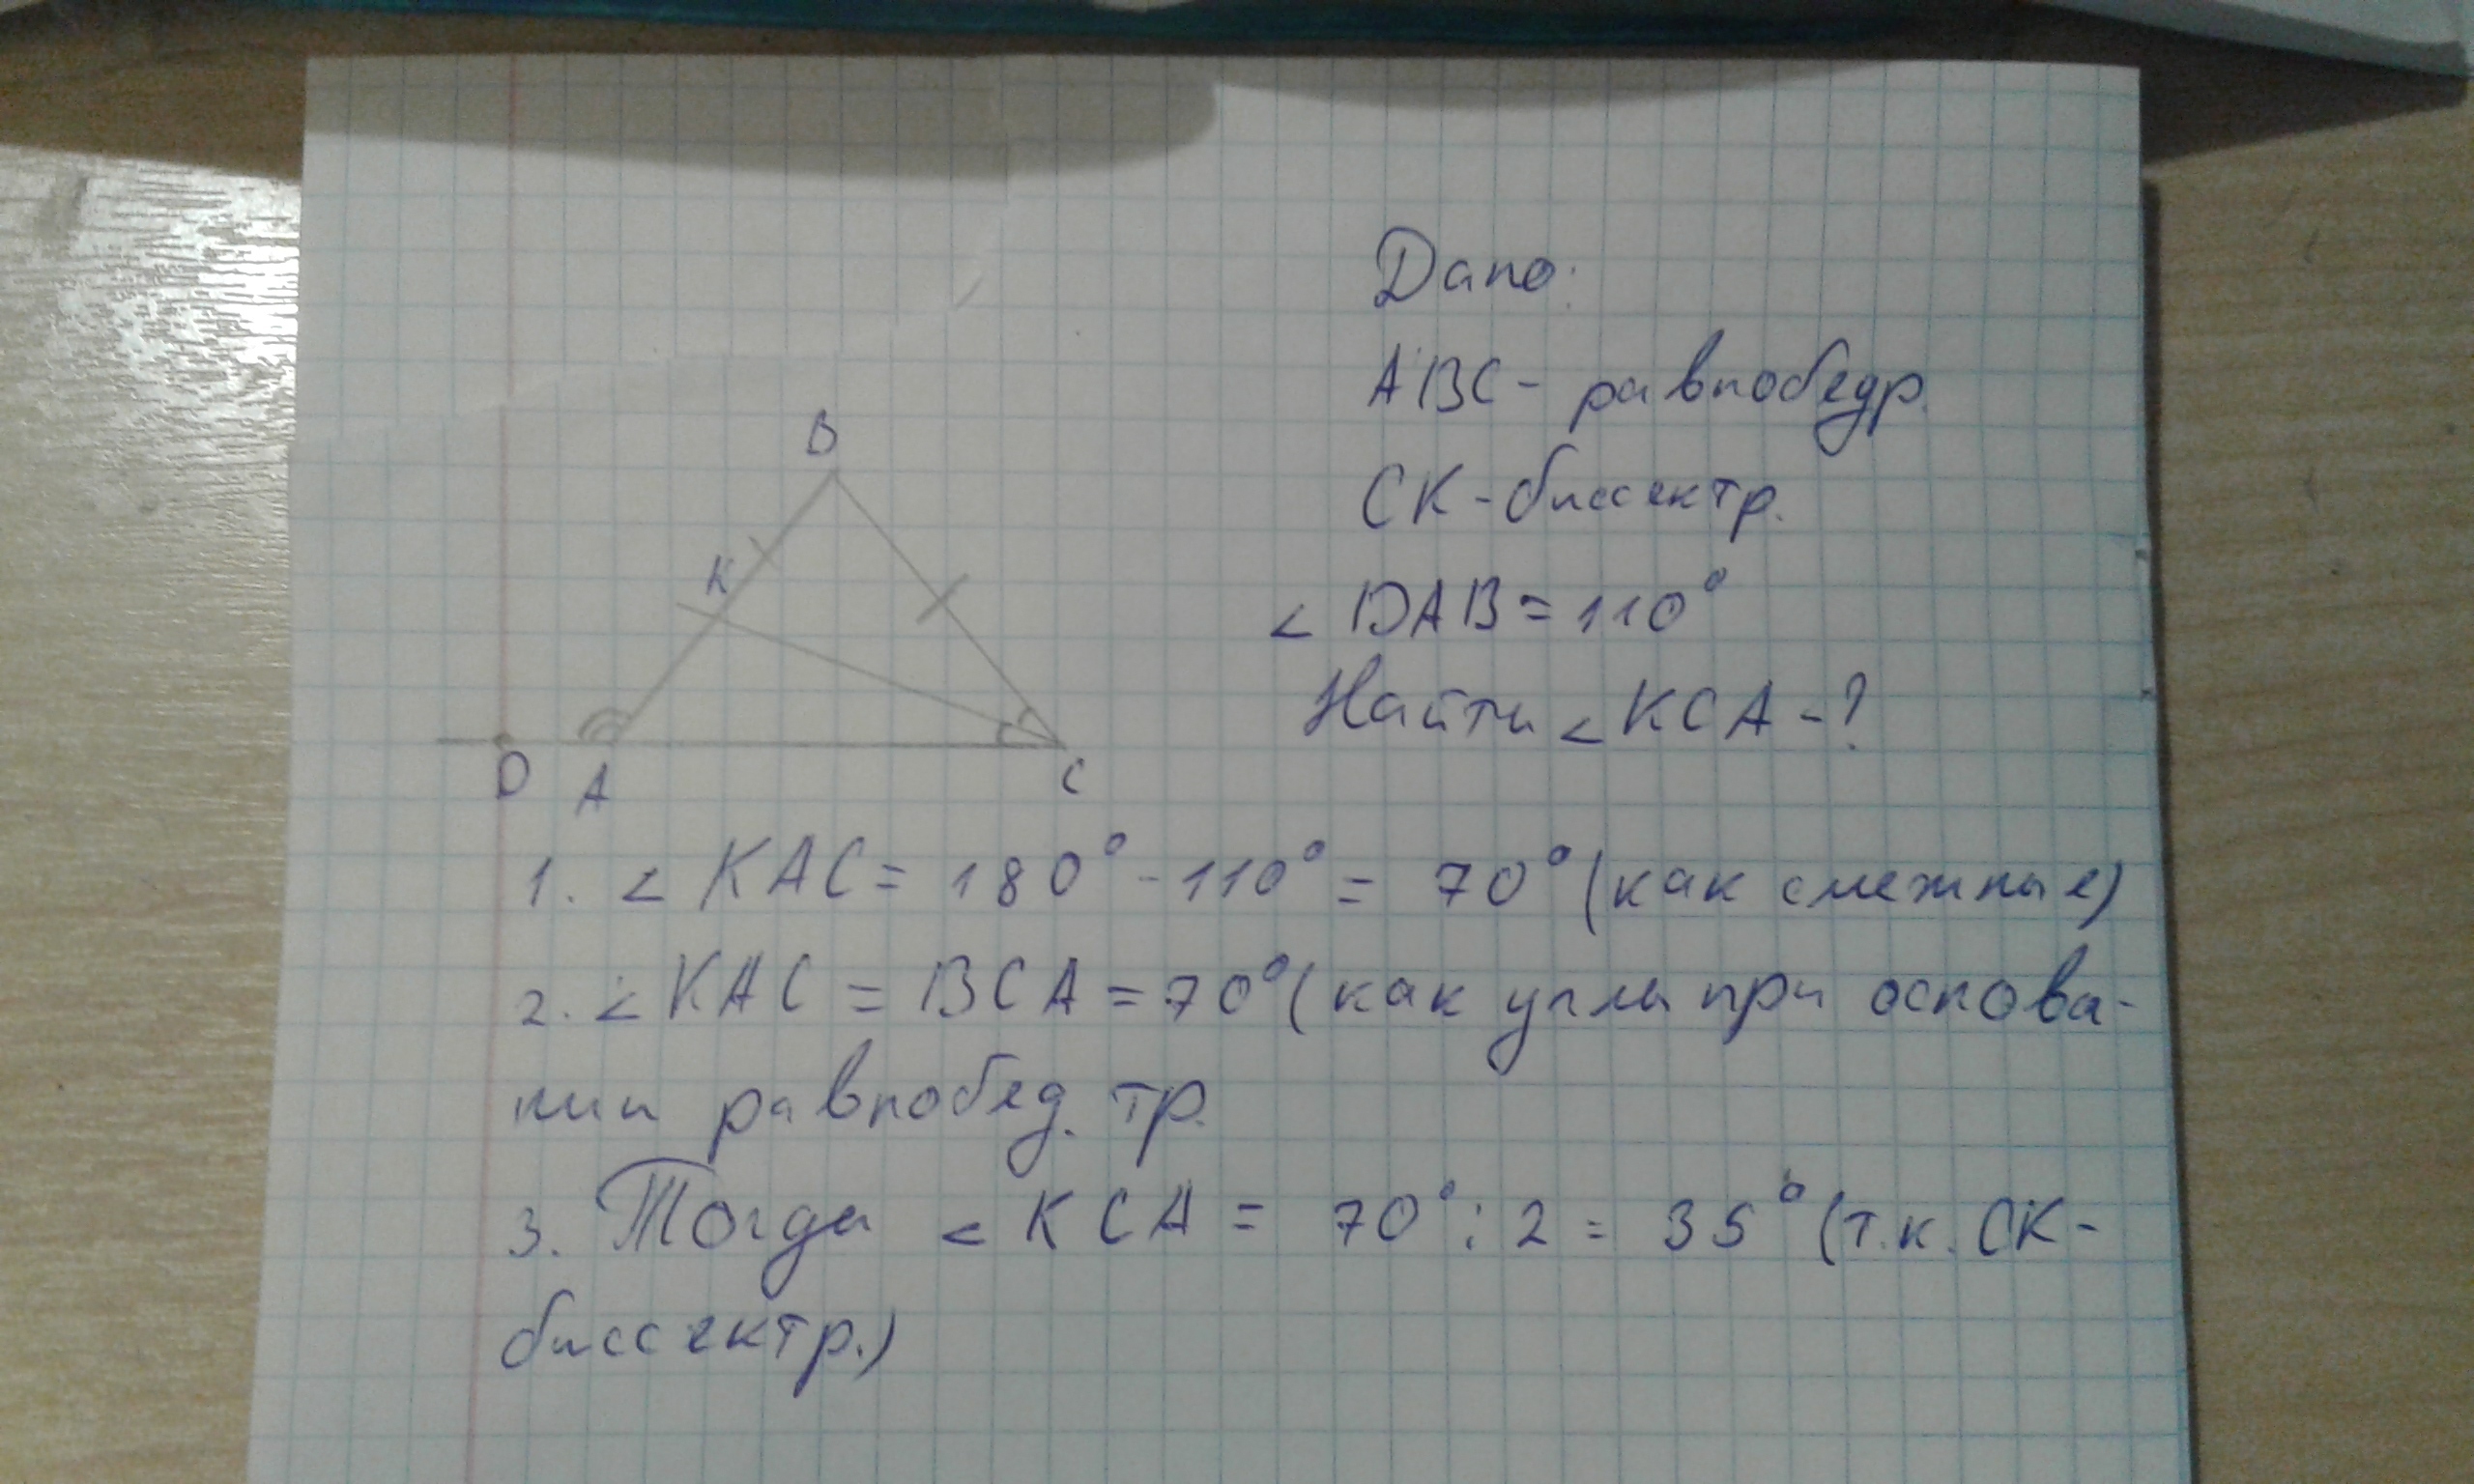 Дано:
ABC - равнобедр.
CK - биссектр.
< DAB = 110°
Найти < KCA - ?
B
K
D A C
1. < KAC = 180° - 110° = 70° (как смежные)
2. < KAC = BCA = 70° (как углы при основа-
нии равнобед. тр.
3. Тогда < KCA = 70° : 2 = 35° (т.к. CK -
биссектр.)